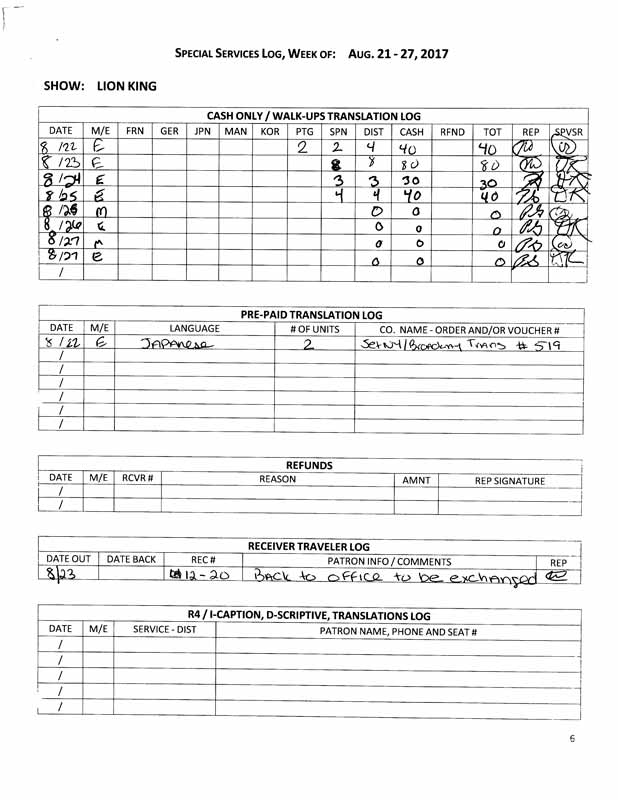 SPECIAL SERVICES LOG, WEEK OF: AUG. 21 - 27, 2017
SHOW: LION KING
CASH ONLY / WALK-UPS TRANSLATION LOG
DATE M/E FRN GER JPN MAN KOR PTG SPN DIST CASH RFND TOT REP SPVSR
8 /22 E 2 2 4 40 40
8 /23 E 8 8 80 80
8 /24 E 3 3 30 30
8 /25 E 4 4 40 40
8 /26 M 0 0 0
8 /26 E 0 0 0
8 /27 M 0 0 0
8 /27 E 0 0 0
/
PRE-PAID TRANSLATION LOG
DATE M/E LANGUAGE # OF UNITS CO. NAME - ORDER AND/OR VOUCHER #
8 /22 E JAPANese 2 /Broadway Trans # 519
/
/
/
/
/
/
REFUNDS
DATE M/E RCVR # REASON AMNT REP SIGNATURE
/
/
RECEIVER TRAVELER LOG
DATE OUT DATE BACK REC # PATRON INFO / COMMENTS REP
8/23 12-20 BACK to office to be exchanged
R4 / I-CAPTION, D-SCRIPTIVE, TRANSLATIONS LOG
DATE M/E SERVICE - DIST PATRON NAME, PHONE AND SEAT #
/
/
/
/
/
6